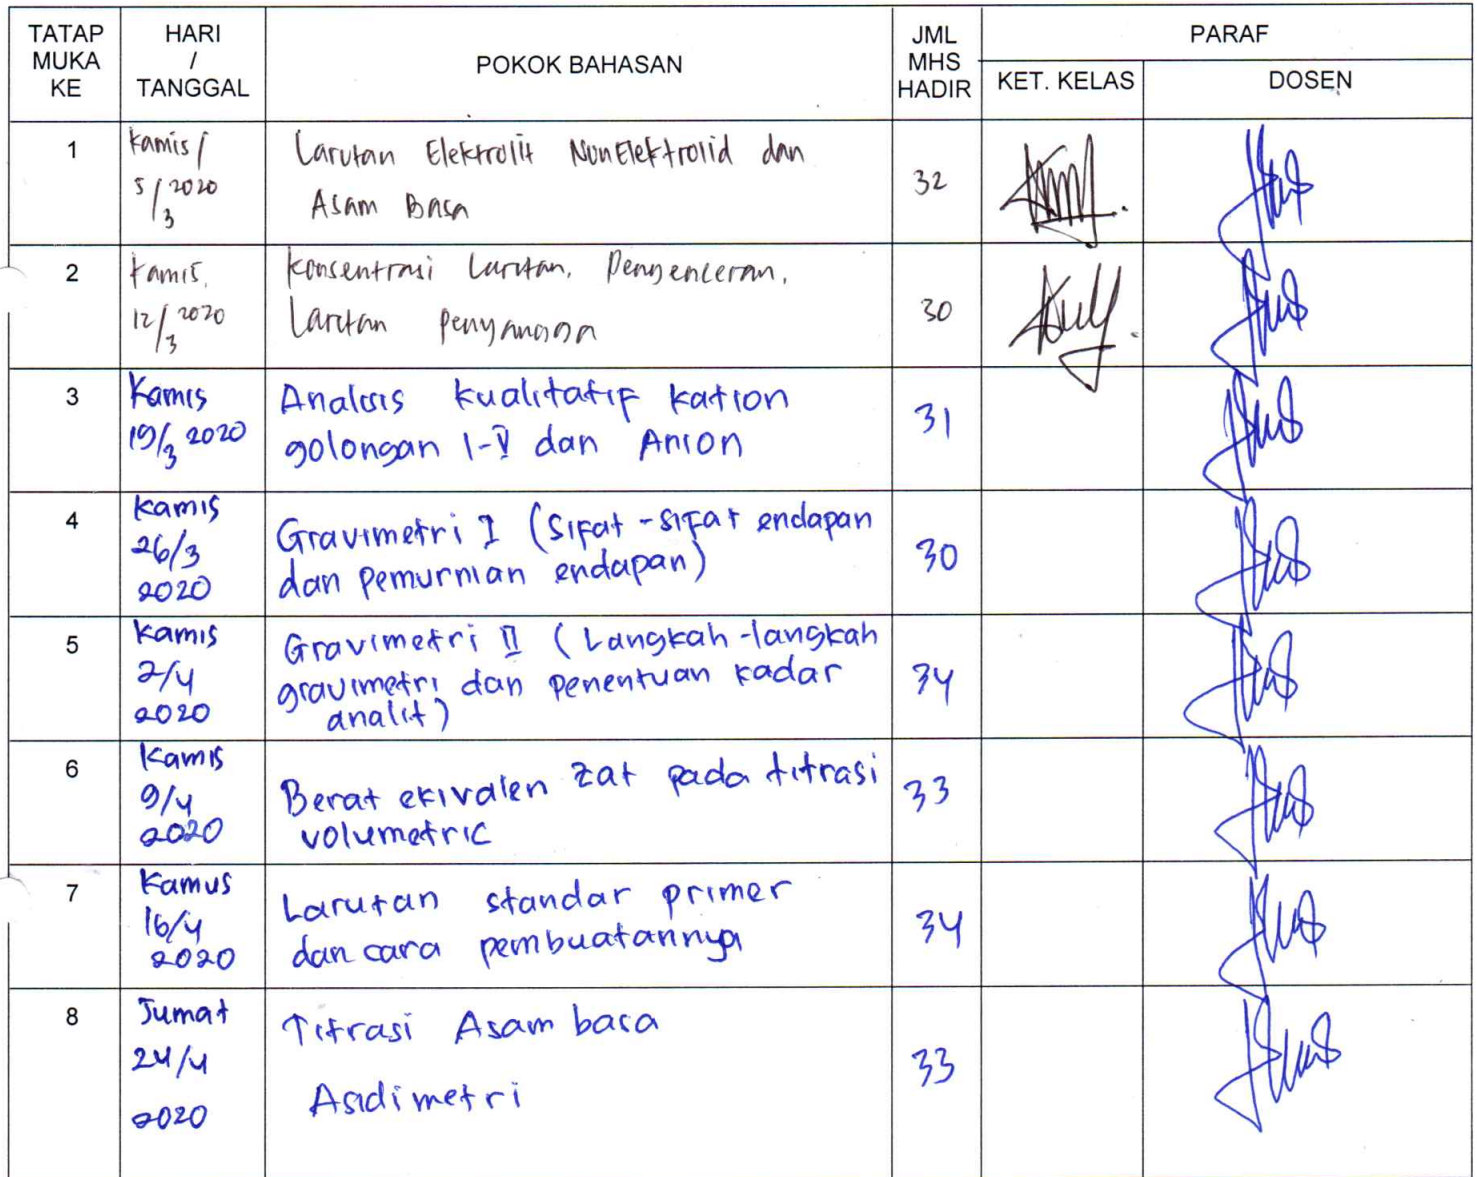 TATAP MUKA KE
HARI / TANGGAL
POKOK BAHASAN
JML MHS HADIR
PARAF
KET. KELAS
DOSEN
1
Kamis /
5/3 2020
Larutan Elektrolit NonElektrolid dan
Asam Basa
32
2
Kamis,
12/3 2020
Konsentrasi Larutan, Pengenceran,
Larutan Penyangga
30
3
Kamis
19/3 2020
Analisis kualitatif kation
golongan I-V dan Anion
31
4
Kamis
26/3
2020
Gravimetri I (Sifat-sifat endapan
dan pemurnian endapan)
30
5
Kamis
2/4
2020
Gravimetri II (Langkah-langkah
gravimetri dan penentuan kadar
analit)
34
6
Kamis
9/4
2020
Berat ekivalen zat pada titrasi
volumetric
33
7
Kamus
16/4
2020
Larutan standar primer
dan cara pembuatannya
34
8
Jumat
24/4
2020
Titrasi Asam basa
Asidimetri
33